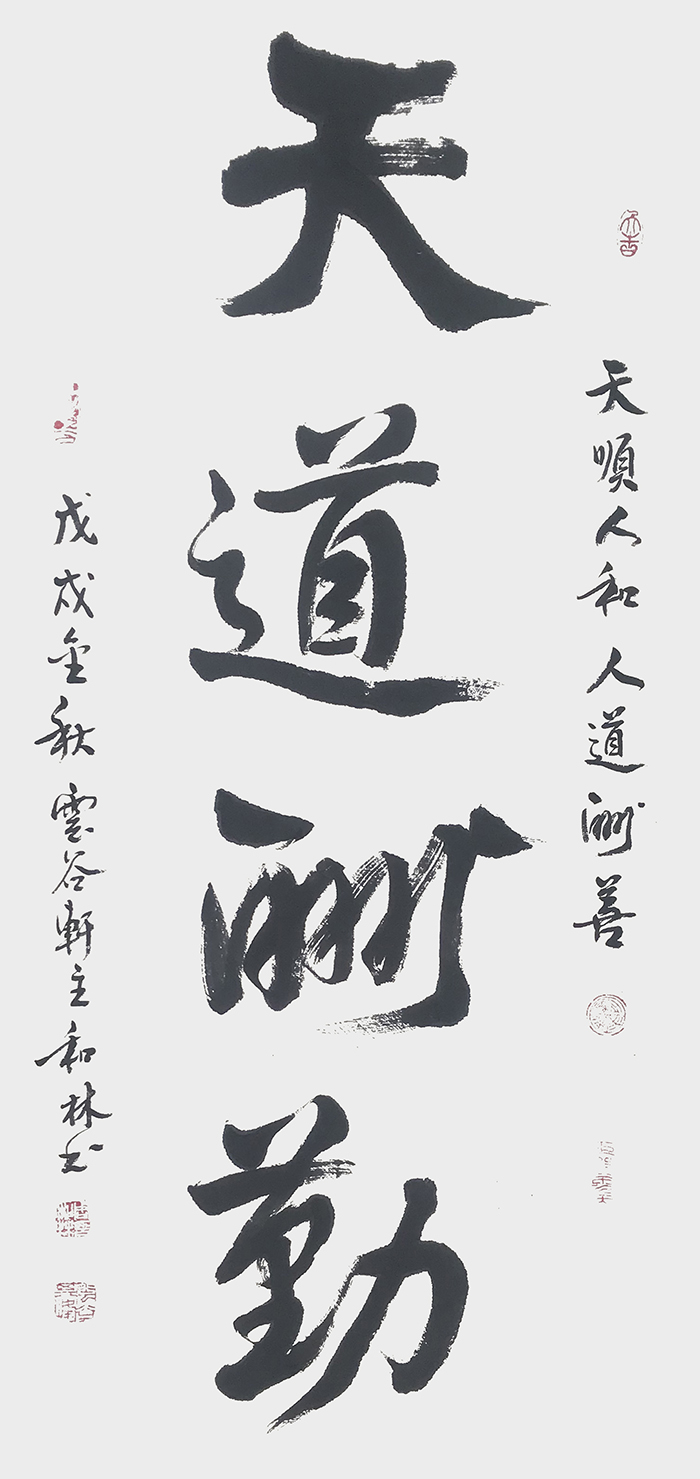 天順人和 人道酬善
天道酬勤
戊戌金秋 雲谷軒主 和林书